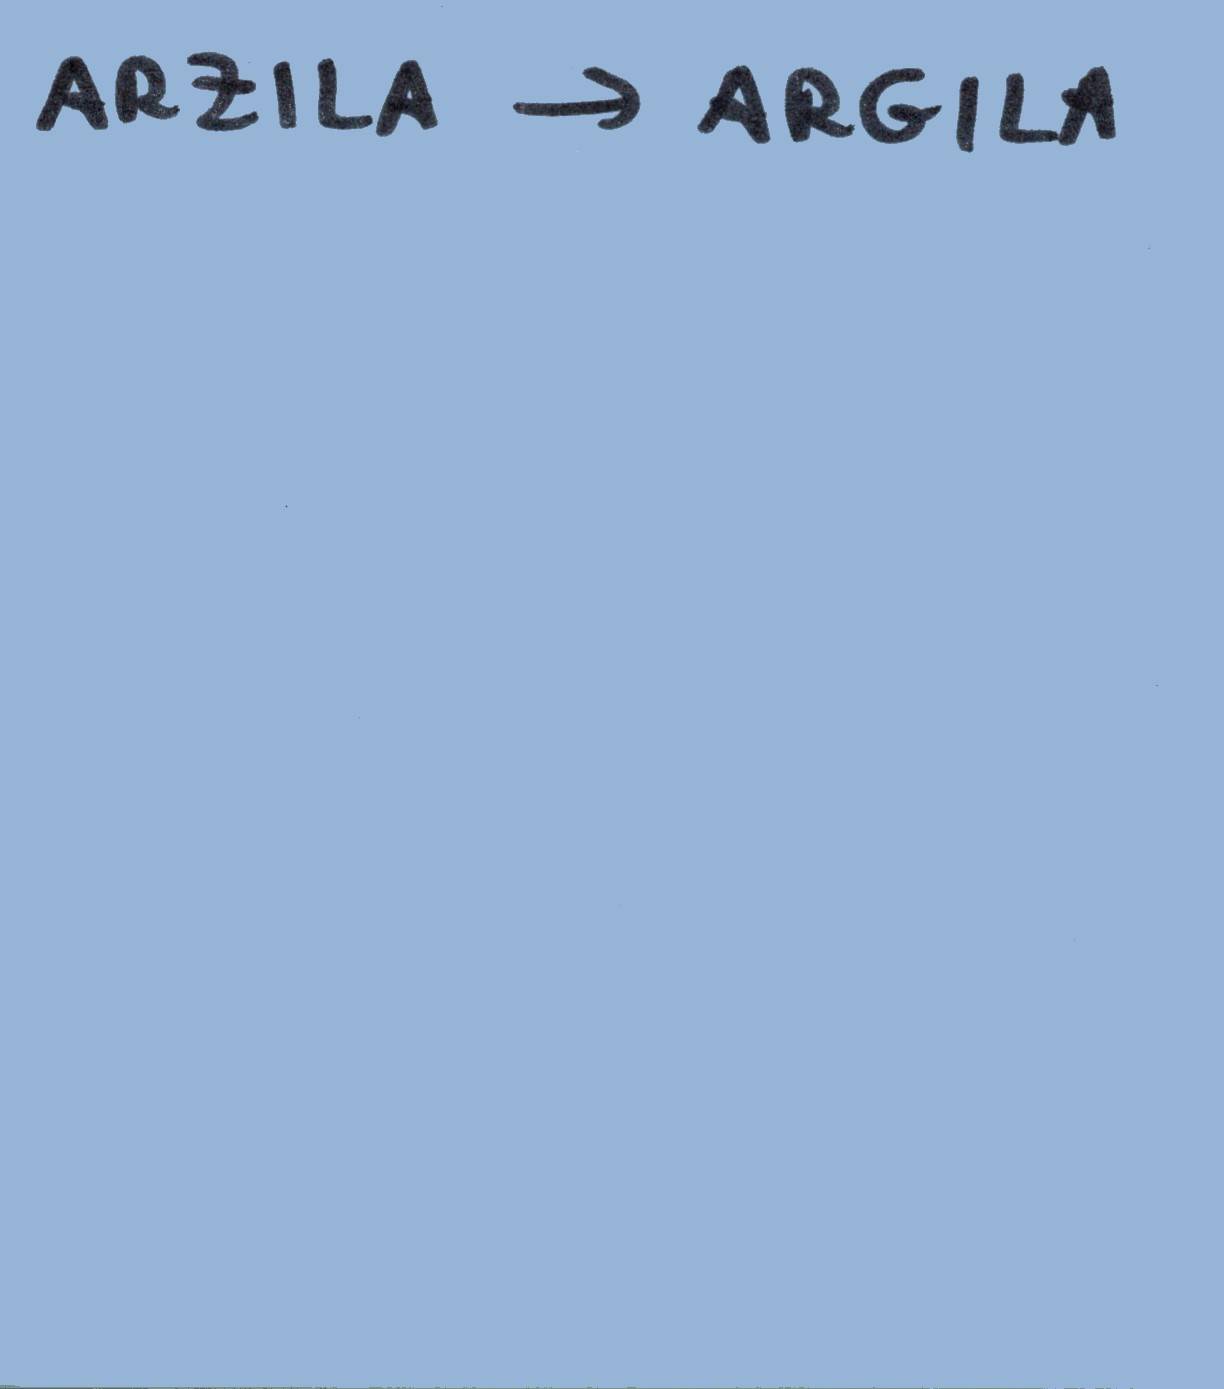 ARZILA → ARGILA